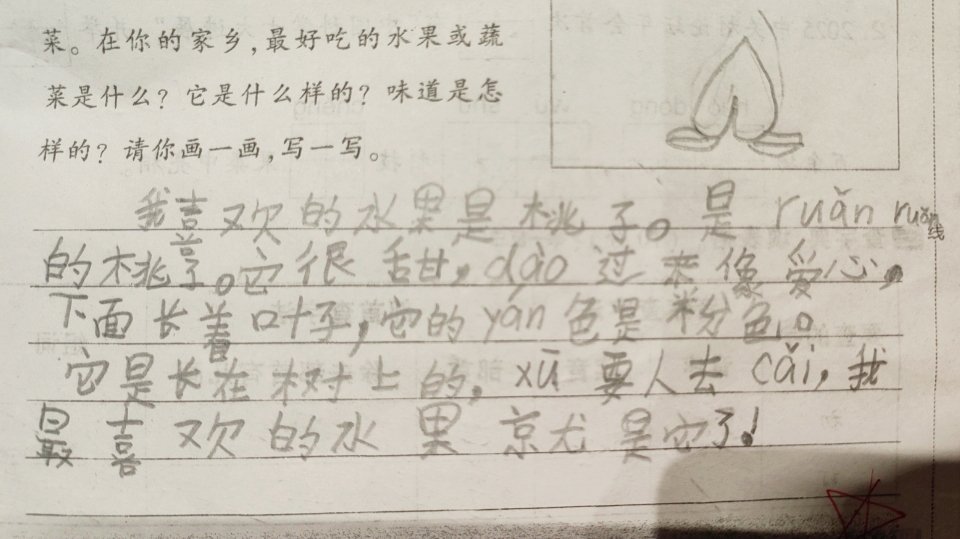 菜。在你的家乡,最好吃的水果或蔬
菜是什么?它是什么样的?味道是怎
样的?请你画一画,写一写。
我喜欢的水果是桃子。是 ruǎn ruǎn
线
的桃子。它很甜,dào 过来像爱心,
下面长着叶子,它的 yán 色是粉色。
它是长在树上的,xū 要人去 cǎi,我
最喜欢的水果京尤是它了!